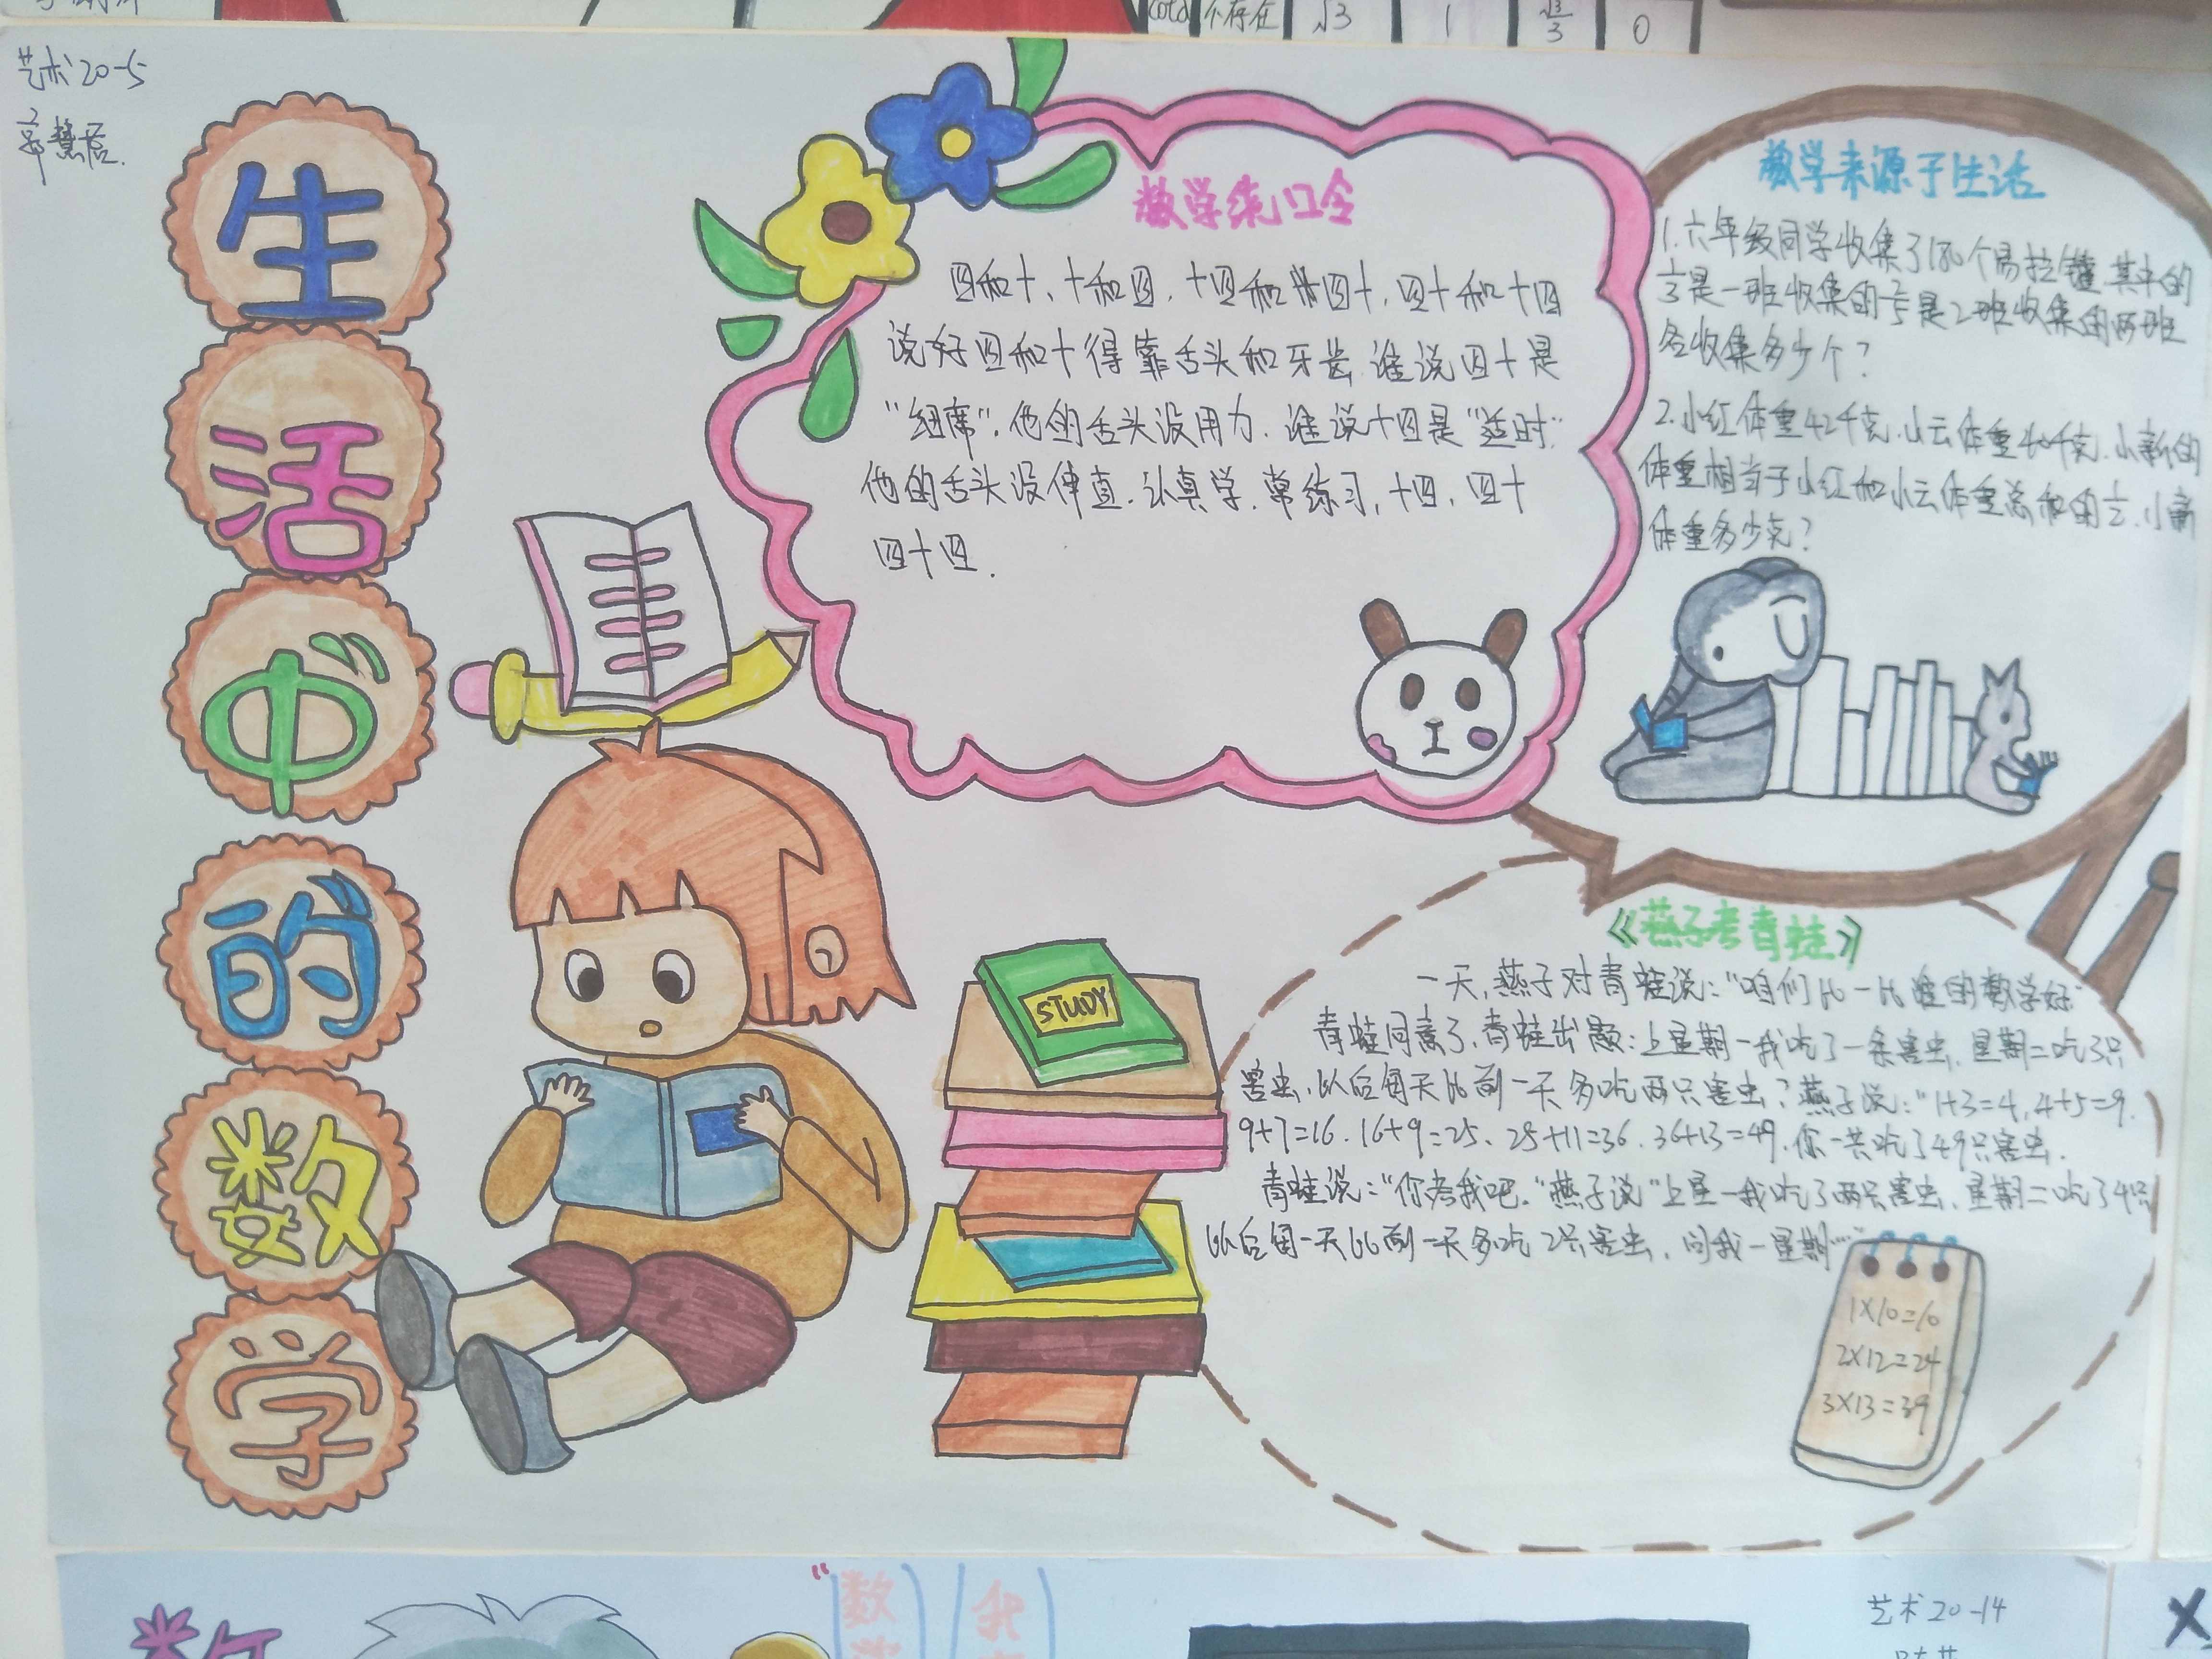 cotα 不存在 √3 1 √3/3 0
艺术20-5
生
活
中
的
数
学
数学绕口令
四和十、十和四,十四和四十,四十和十四
说好四和十得靠舌头和牙齿.谁说四十是
"细席",他的舌头没用力.谁说十四是"适时"
他的舌头没伸直.认真学.常练习,十四,四十
四十四.
数学来源于生活
1.六年级同学收集了180个易拉罐,其中的
1/3是一班收集的 是2班收集的两班
各收集多少个?
2.小红体重42千克.小云体重40千克.小新的
体重相当于小红和小云体重总和的1/2.小新
体重多少克?
《燕子考青蛙》
一天,燕子对青蛙说:"咱们比一比谁的数学好"
青蛙同意了,青蛙出题:上星期一我吃了一条害虫,星期二吃3只
害虫,以后每天比前一天多吃两只害虫?燕子说:"1+3=4,4+5=9.
9+7=16.16+9=25、25+11=36.36+13=49.你一共吃了49只害虫.
青蛙说:"你考我吧."燕子说"上星一我吃了两只害虫,星期二吃了4只
以后每一天比前一天多吃2只害虫,问我一星期……"
STUDY
1×10=10
2×12=24
3×13=39
数
艺术20-14